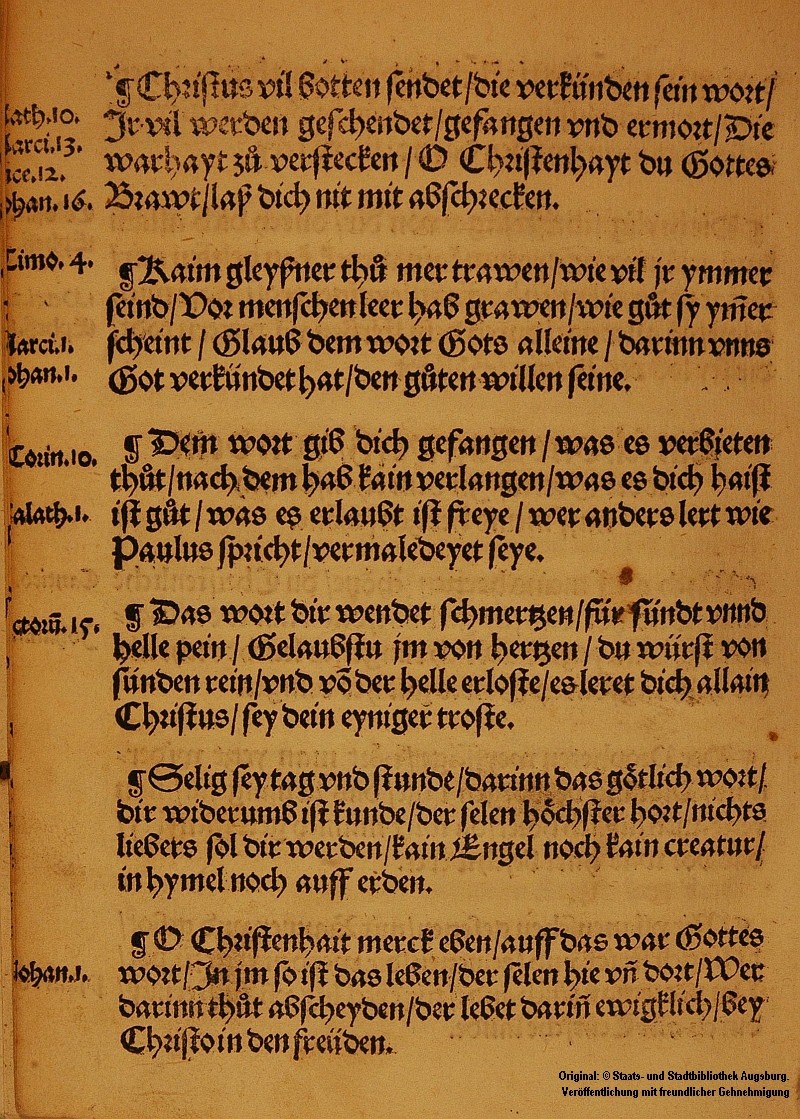 ¶ Christus vil botten sendet/die verkünden sein wort/
Jr vil werden geschendet/gefangen vnd ermort/Die
warhayt zů verstecken/O Christenhayt du Gottes
Brawt/laß dich nit mit abschrecken.
ath.10.
arci.13.
uce.12.
ohan.16.
¶Kaim gleyßner thů mer trawen/wie vil jr ymmer
seind/Vor menschen leer hab grawen/wie gůt sy ym̃er
scheint/Glaub dem wort Gots alleine/darinn vnns
Got verkündet hat/den gůten willen seine.
Timo. 4.
Marci.1.
ohan.1.
¶ Dem wort gib dich gefangen/was es verbieten
thůt/nach dem hab kain verlangen/was es dich haist
ist gůt/was es erlaubt ist freye/wer anders lert wie
Paulus spricht/vermaledeyet seye.
Corin.10.
alath.1.
¶ Das wort dir wendet schmertzen/für sündt vnnd
helle pein/Gelaubstu jm von hertzen/du würst von
sünden rein/vnd võ der helle erloste/es leret dich allain
Christus/sey dein eyniger troste.
ctorũ.15.
¶Selig sey tag vnd stunde/darinn das götlich wort/
dir widerumb ist kunde/der selen höchster hort/nichts
liebers sol dir werden/kain Engel noch kain creatur/
in hymel noch auff erden.
¶ O Christenhait merck eben/auff das war Gottes
wort/Jn jm so ist das leben/der selen hie vñ dort/Wer
darinn thůt abscheyden/der lebet dariñ ewigklich/bey
Christo in den freüden.
Johan.1.
Original: © Staats- und Stadtbibliothek Augsburg.
Veröffentlichung mit freundlicher Gehnehmigung